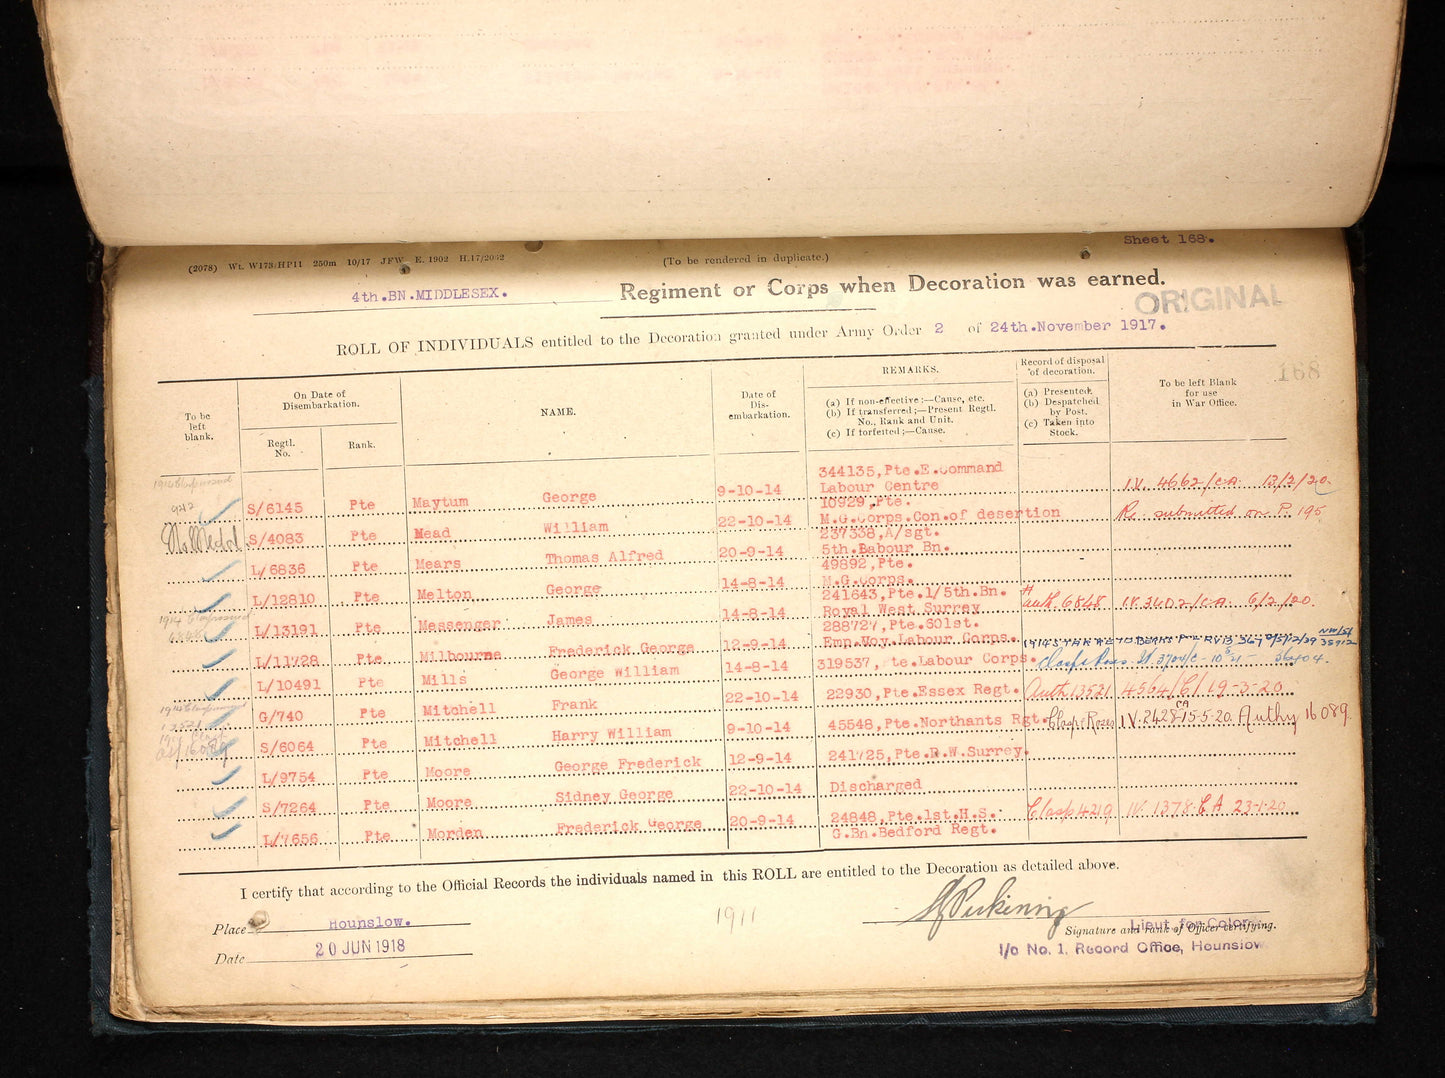 Sheet 168.
(2078) Wt. W178/HP11 250m 10/17 JFW E. 1902 H.17/20
(To be rendered in duplicate.)
4th.BN.MIDDLESEX. Regiment or Corps when Decoration was earned.
ORIGINAL
ROLL OF INDIVIDUALS entitled to the Decoration granted under Army Order 2 of 24th.November 1917.
168
To be left blank.
On Date of Disembarkation.
Regtl. No.
Rank.
NAME.
Date of Dis-embarkation.
REMARKS.
(a) If non-effective:—Cause, etc.
(b) If transferred;—Present Regtl. No., Rank and Unit.
(c) If forfeited;—Cause.
Record of disposal of decoration.
(a) Presented.
(b) Despatched by Post.
(c) Taken into Stock.
To be left Blank for use in War Office.
S/6145 Pte Maytum George 9-10-14 344135,Pte.E.Command Labour Centre IV. 4662/CA. 13/2/20.
No Medal S/4083 Pte Mead William 22-10-14 10929,Pte. M.G.Corps.Con.of desertion Re-submitted on P. 195
L/6836 Pte Mears Thomas Alfred 20-9-14 237338,A/sgt. 5th.Labour Bn.
L/12810 Pte Melton George 14-8-14 49892,Pte. M.G.Corps.
L/13191 Pte Messenger James 14-8-14 241643,Pte.1/5th.Bn. Royal West Surrey Auth 6848 IV.3402/CA. 6/2/20.
L/11728 Pte Milbourne Frederick George 12-9-14 288727,Pte.601st. Emp.Moy.Labour Corps.
L/10491 Pte Mills George William 14-8-14 319537, te.Labour Corps. Clasp & Roses
G/740 Pte Mitchell Frank 22-10-14 22930,Pte.Essex Regt. Auth 13521 4564/C/19-3-20
S/6064 Pte Mitchell Harry William 9-10-14 45548,Pte.Northants Rgt. Clasp & Roses IV.2428 CA 15-5-20. Authy 16089.
L/9754 Pte Moore George Frederick 12-9-14 241725,Pte.R.W.Surrey.
S/7264 Pte Moore Sidney George 22-10-14 Discharged
L/7656 Pte Morden Frederick George 20-9-14 24848,Pte.1st.H.S. G.Bn.Bedford Regt. Clasp 4219 IV. 1378.CA 23-1-20
I certify that according to the Official Records the individuals named in this ROLL are entitled to the Decoration as detailed above.
Place Hounslow.
1911
Lieut for Colonel
Signature and rank of Officer certifying.
Date 20 JUN 1918
I/c No. 1. Record Office, Hounslow.